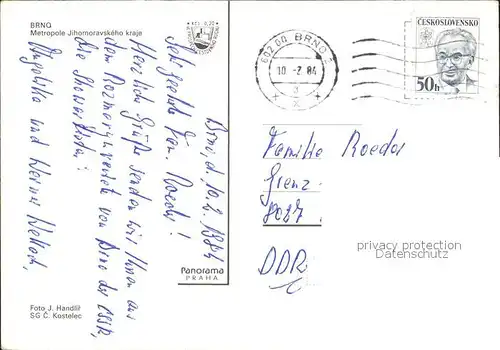 BRNO
Metropole Jihomoravského kraje
KČS 0,20
Brno, d. 10. 2. 1984
Sehr geehrte Fam. Roeder!
Herzliche Grüße senden wir Ihnen aus
dem Rosmarynveretek von Brno der ČSSR,
die Slowaktkdn.:
Angelika und Werner
Panorama
PRAHA
Foto J. Handlíř
SG Č. Kostelec
602 00 BRNO 2
10.-2. 84
a
ČESKOSLOVENSKO
50h
Familie Roeder
Grenz
8027
DDR
privacy protection
Datenschutz